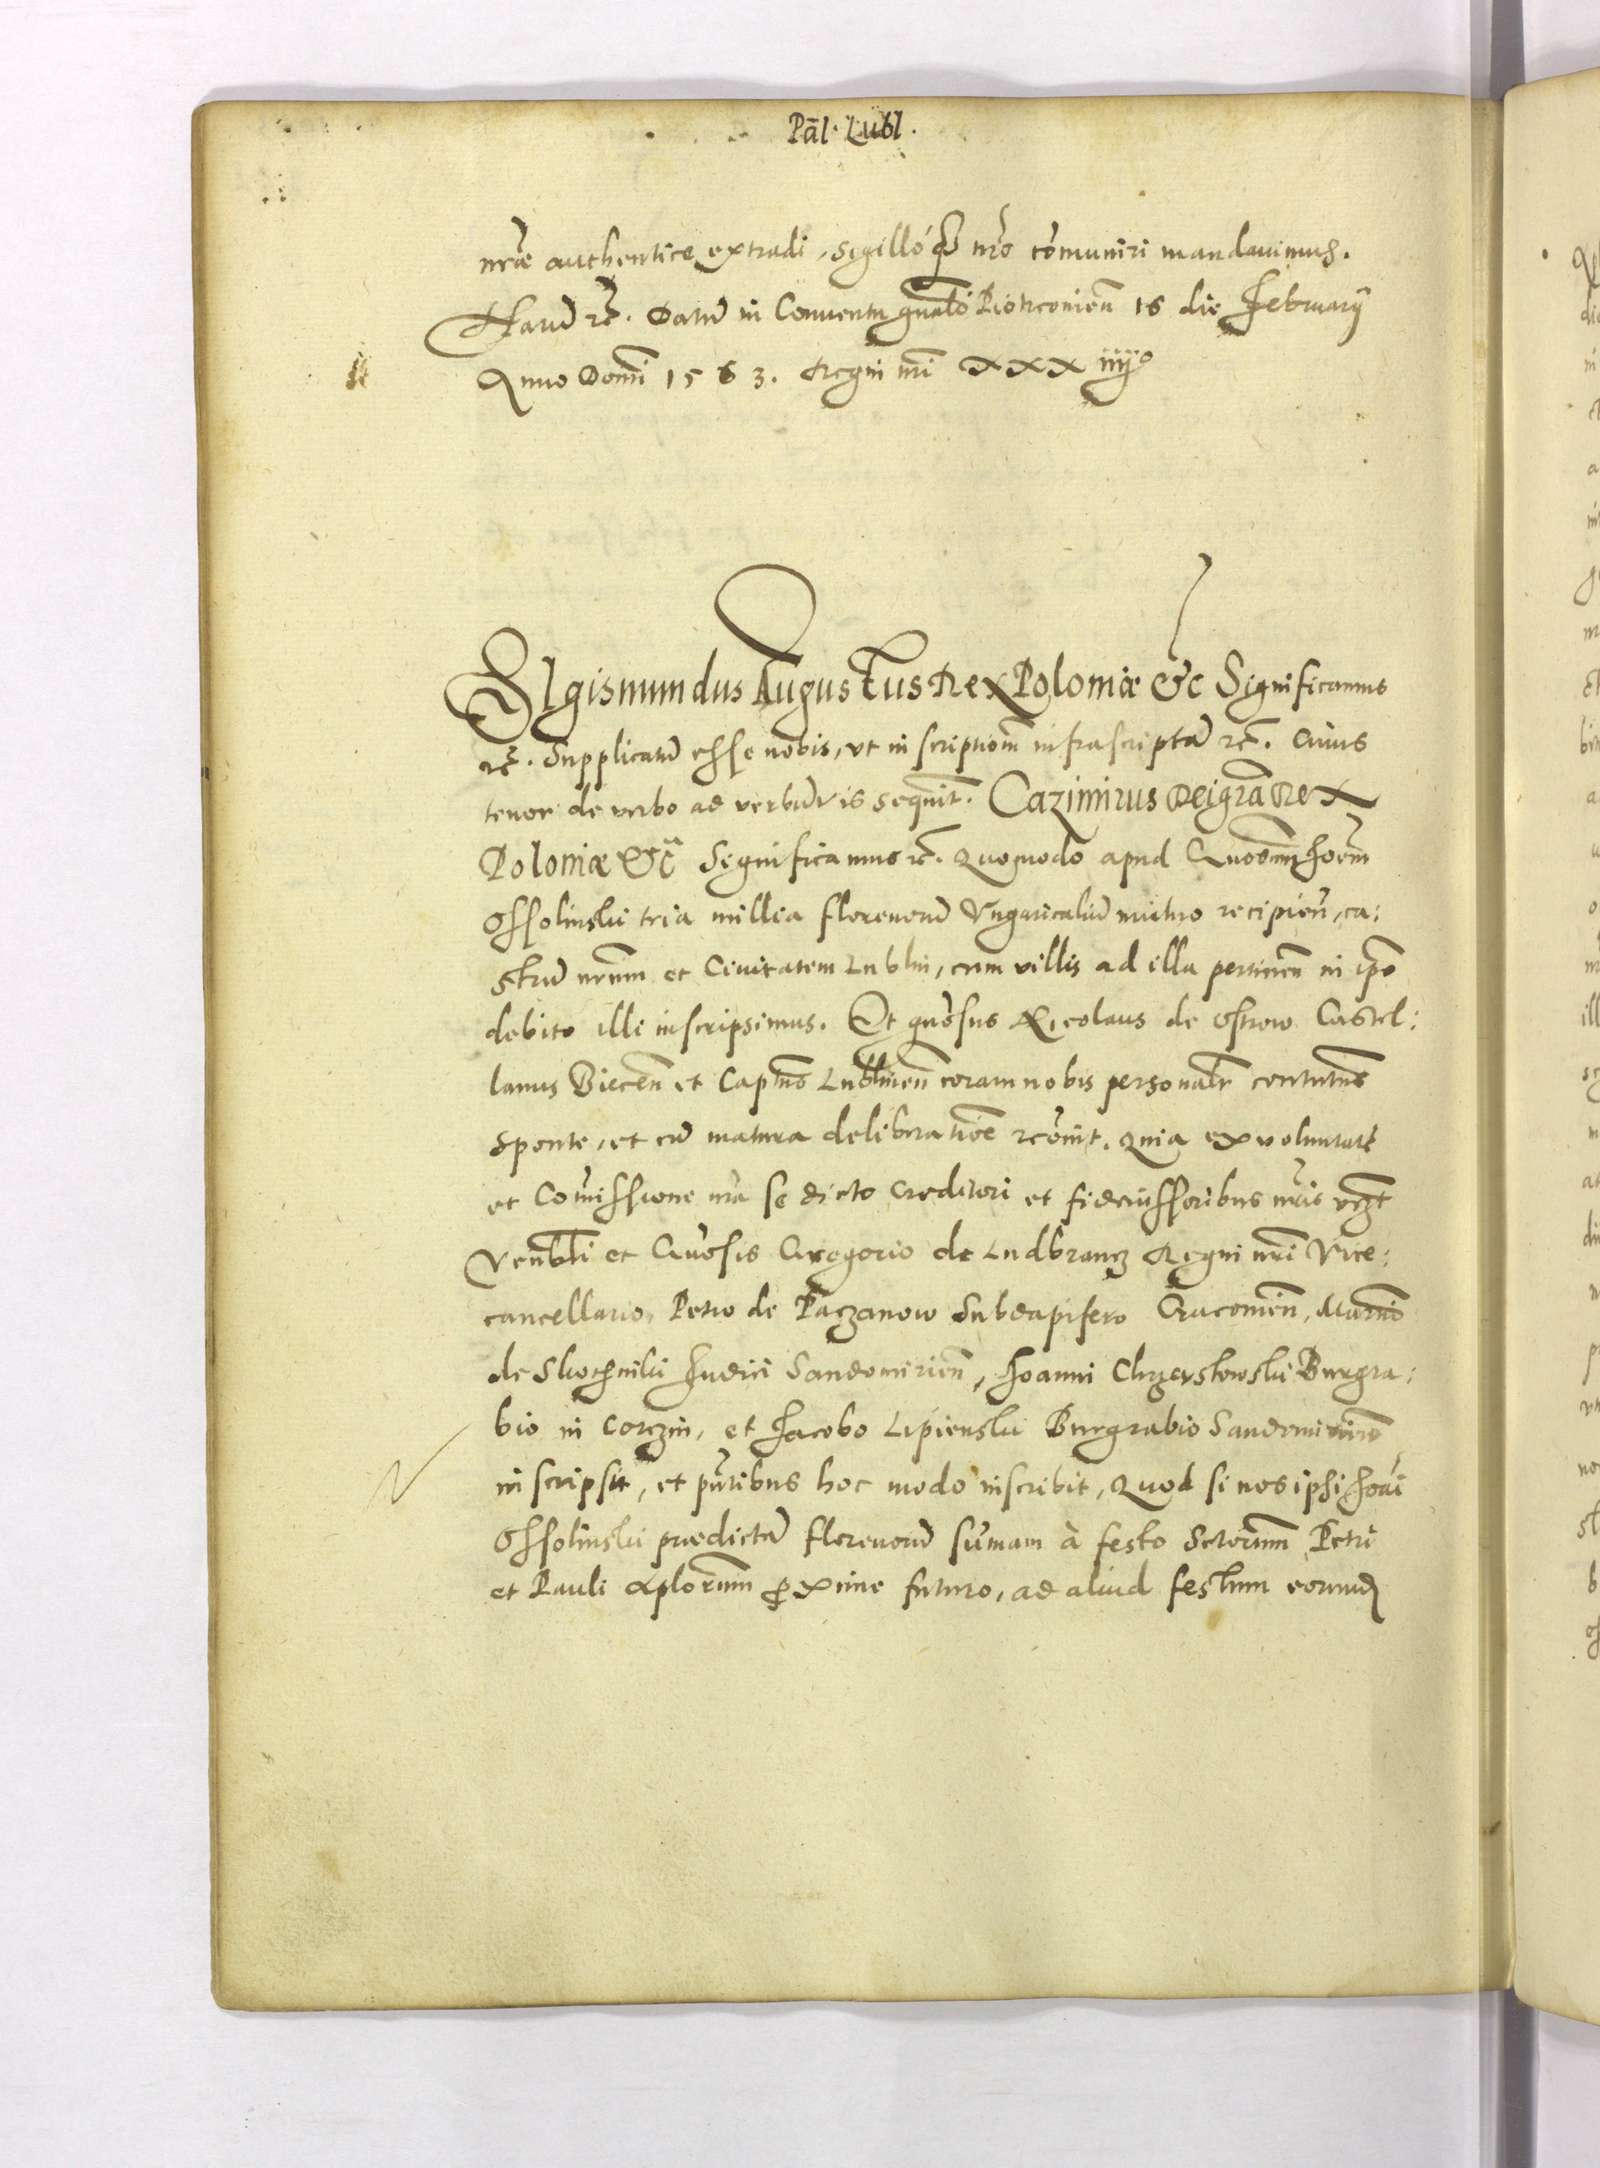 Pal. Lubl.
nrae authentice extradi, sigilloq nro comuniri mandauimus.
Harū rc. Datū in Conuentu gnali Piotrconien 16 die February
Anno Domi 1563. Regni nri XXXiiij°
SIgismundus Augustus Rex Poloniæ &c Significamus
rc. Supplicatū esse nobis, vt inscriptiom infrascriptā rc. Cuius
tenor de verbo ad verbum is sequit. Cazimirus Dei gra Rex
Poloniæ &c Significamus rc. Quomodo apud Gnosum Joem
Ossolinski tria millia florenorū Vngaricaliū mutuo recipien, ca:
strū nrum et Ciuitatem Lublin, cum villis ad illa pertinen in ipo
debito illi inscripsimus. Et gnosus Nicolaus de Ostrow Castel:
lanus Biecen et Captnus Lublinen coram nobis personalr constitutus
sponte, et cū matura deliberatioe recouit. Quia ex voluntate
et Comissione nra se dicto Creditori et fideiussoribus nris vzt
Venbli et Gnosis Gregorio de Ludbrancz Regni nri Vice:
cancellario, Petro de Paczanow Subdapifero Cracouien, Martino
de Skothniki Judici Sandomirien, Joanni Chrzastowski Burgra:
bio in Corczin, et Jacobo Lipienski Burgrabio Sandomirien
inscripsit, et pntibus hoc modo inscribit, Quod si nos ipsi Joāi
Ossolinski prædictā florenorū sūmam à festo Sctorum Petri
et Pauli Aplorum proxime futuro, ad aliud festum eorund